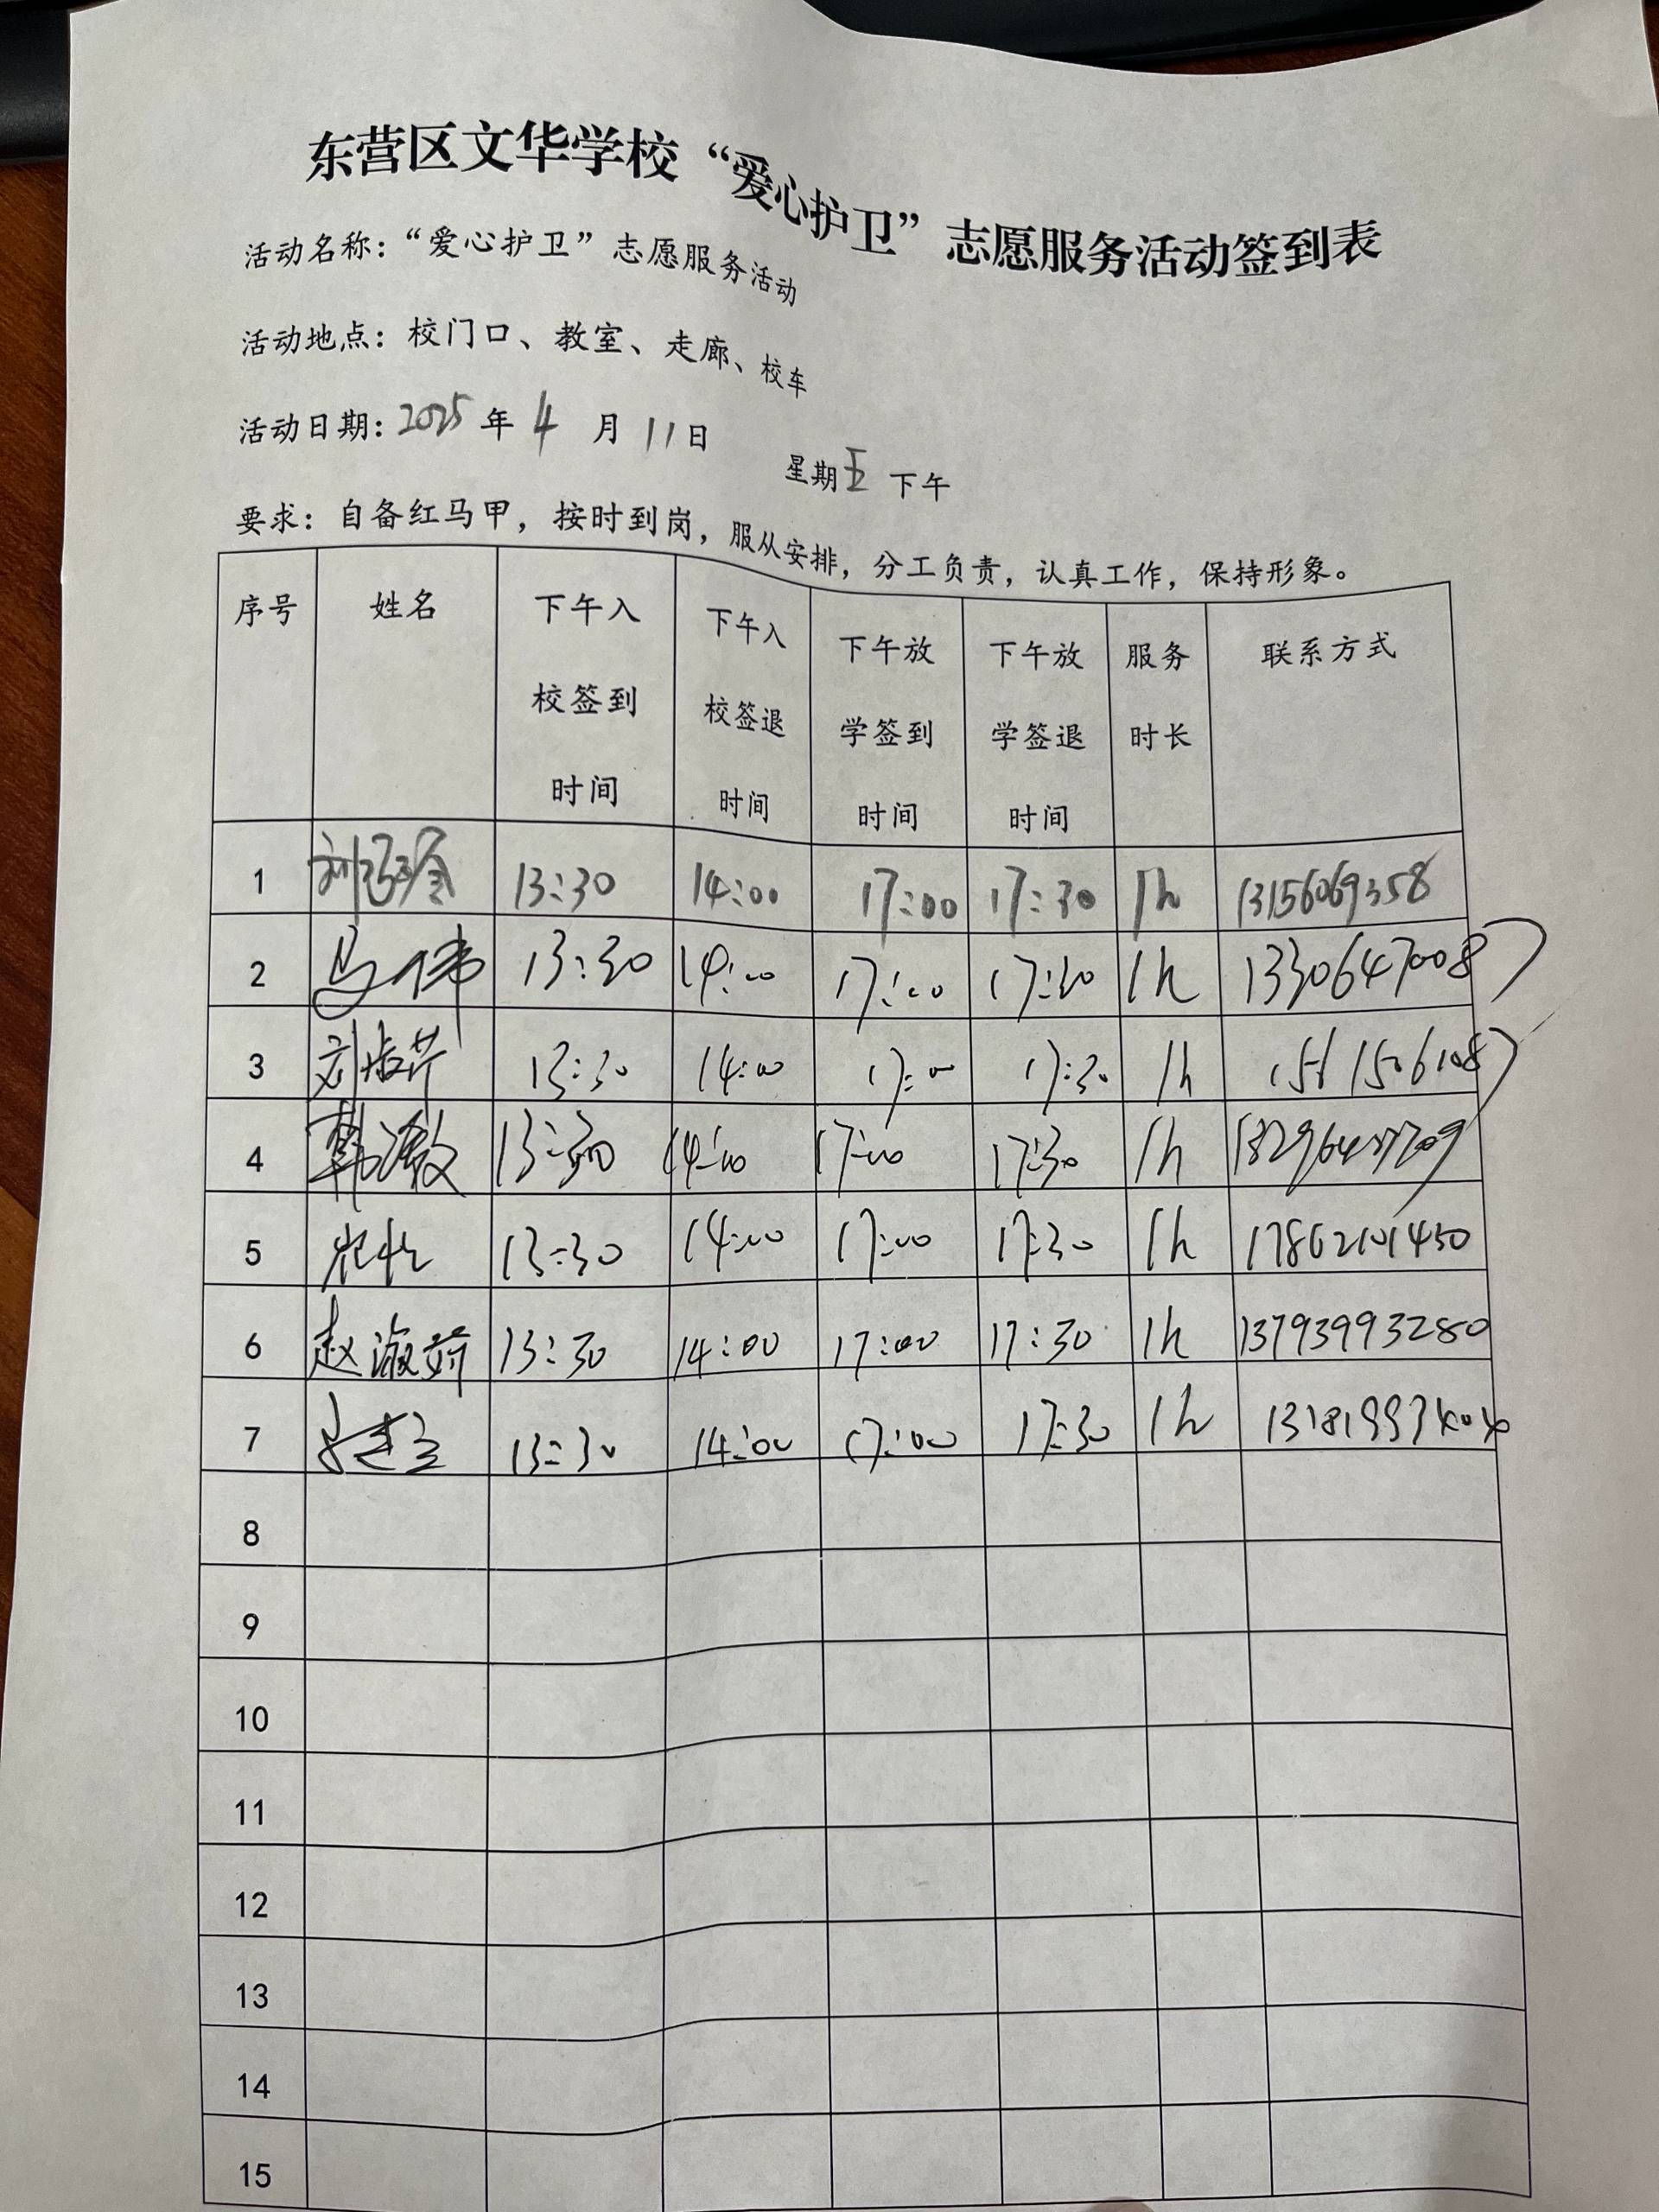 东营区文华学校“爱心护卫”志愿服务活动签到表
活动名称：“爱心护卫”志愿服务活动
活动地点：校门口、教室、走廊、校车
活动日期：2025年4月11日 星期五 下午
要求：自备红马甲，按时到岗，服从安排，分工负责，认真工作，保持形象。
序号 姓名 下午入校签到时间 下午入校签退时间 下午放学签到时间 下午放学签退时间 服务时长 联系方式
1 13:30 14:00 17:00 17:30 1h 13156069358
2 马伟 13:30 14:00 17:00 17:30 1h 13306470087
3 13:30 14:00 17:00 17:30 1h 15615061087
4 13:30 14:00 17:00 17:30 1h
5 13:30 14:00 17:00 17:30 1h 17862101450
6 赵淑娇 13:30 14:00 17:00 17:30 1h 13793993280
7 13:30 14:00 17:00 17:30 1h
8
9
10
11
12
13
14
15